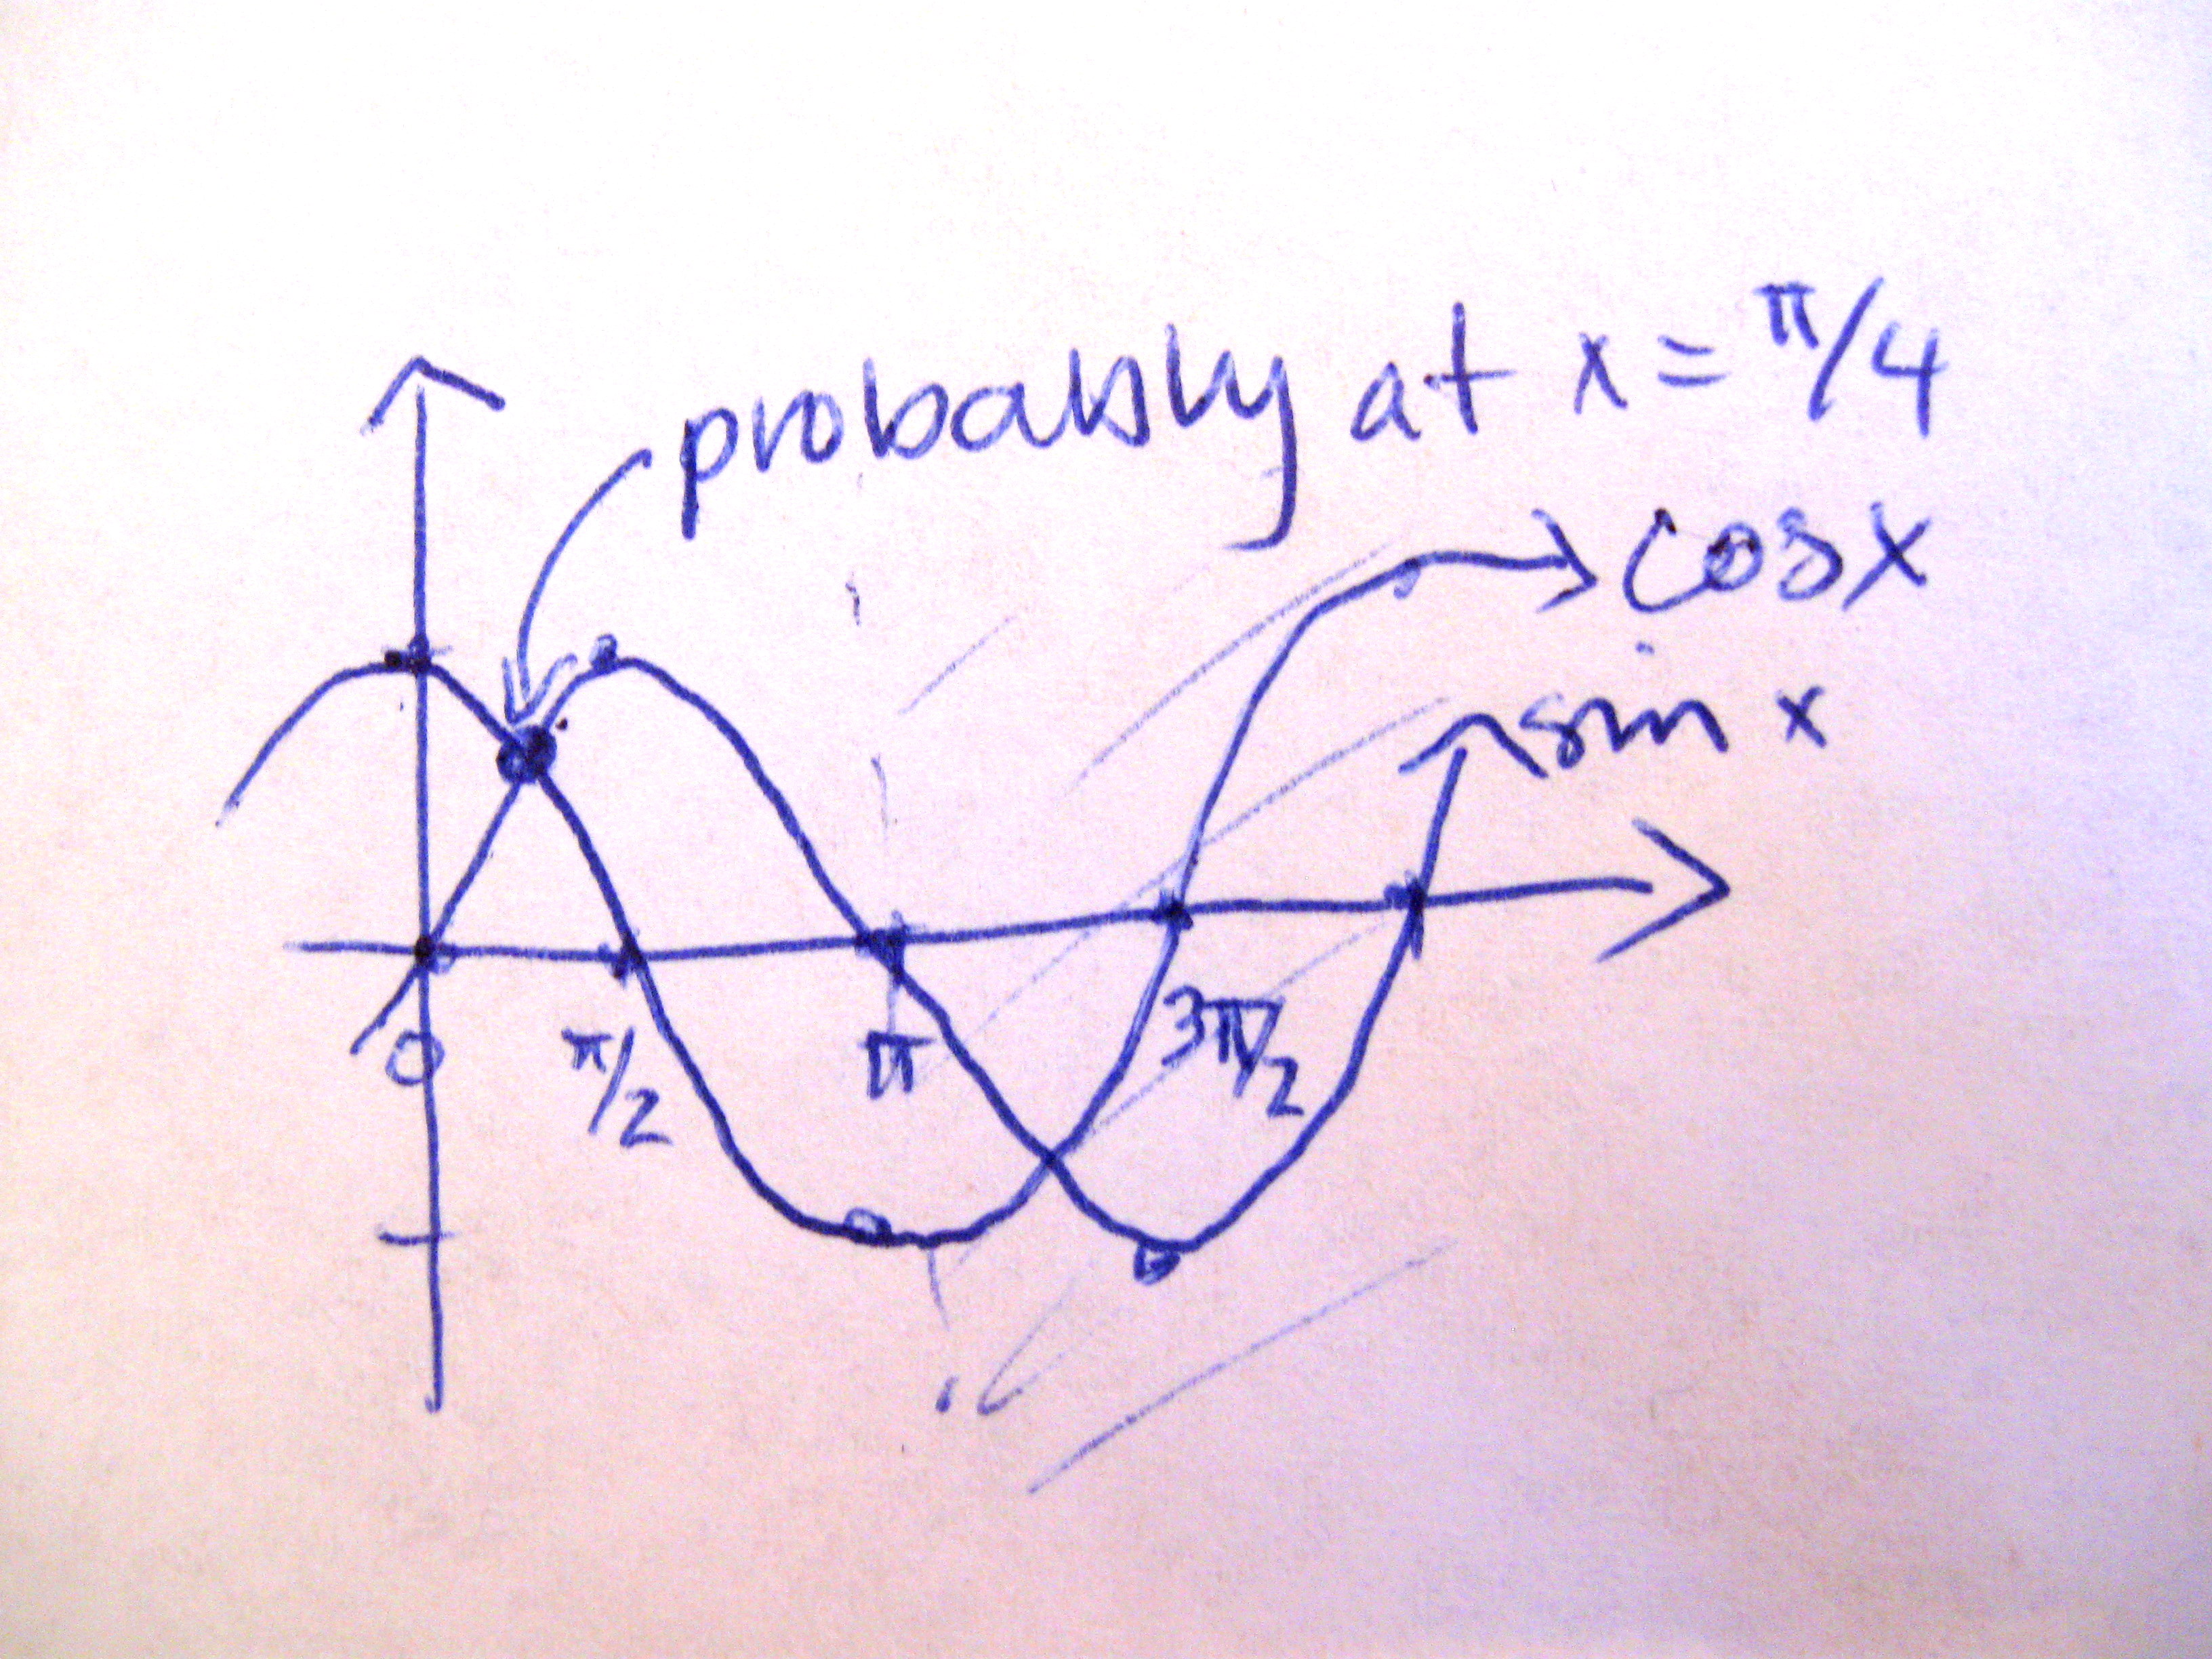 probably at x = π/4
cos x
sin x
0 π/2 π 3π/2